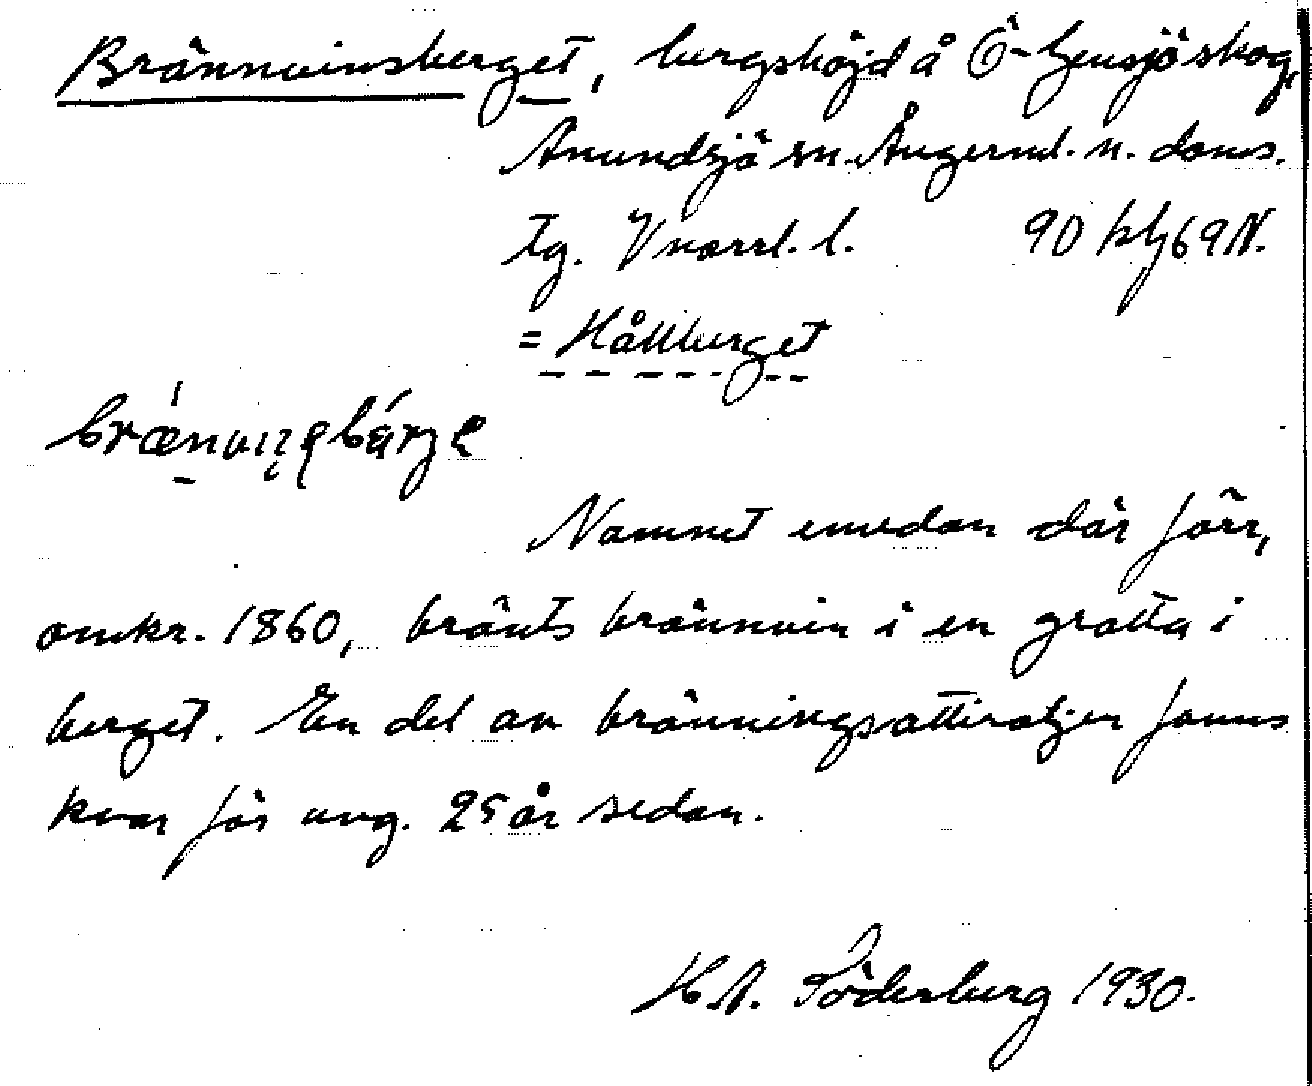 Brännvinsberget, bergshöjd å Ö-Gensjöskog,
Anundsjö sn. Ångerml. n. doms.
tg. Vnorrl. l. 90 69N.
= Hållberget
Namnet emedan där förr,
omkr. 1860, bränts brännvin i en grotta i
berget. En del av bränningsattiraljen fanns
kvar för ung. 25 år sedan.
H.A. Söderberg 1930.